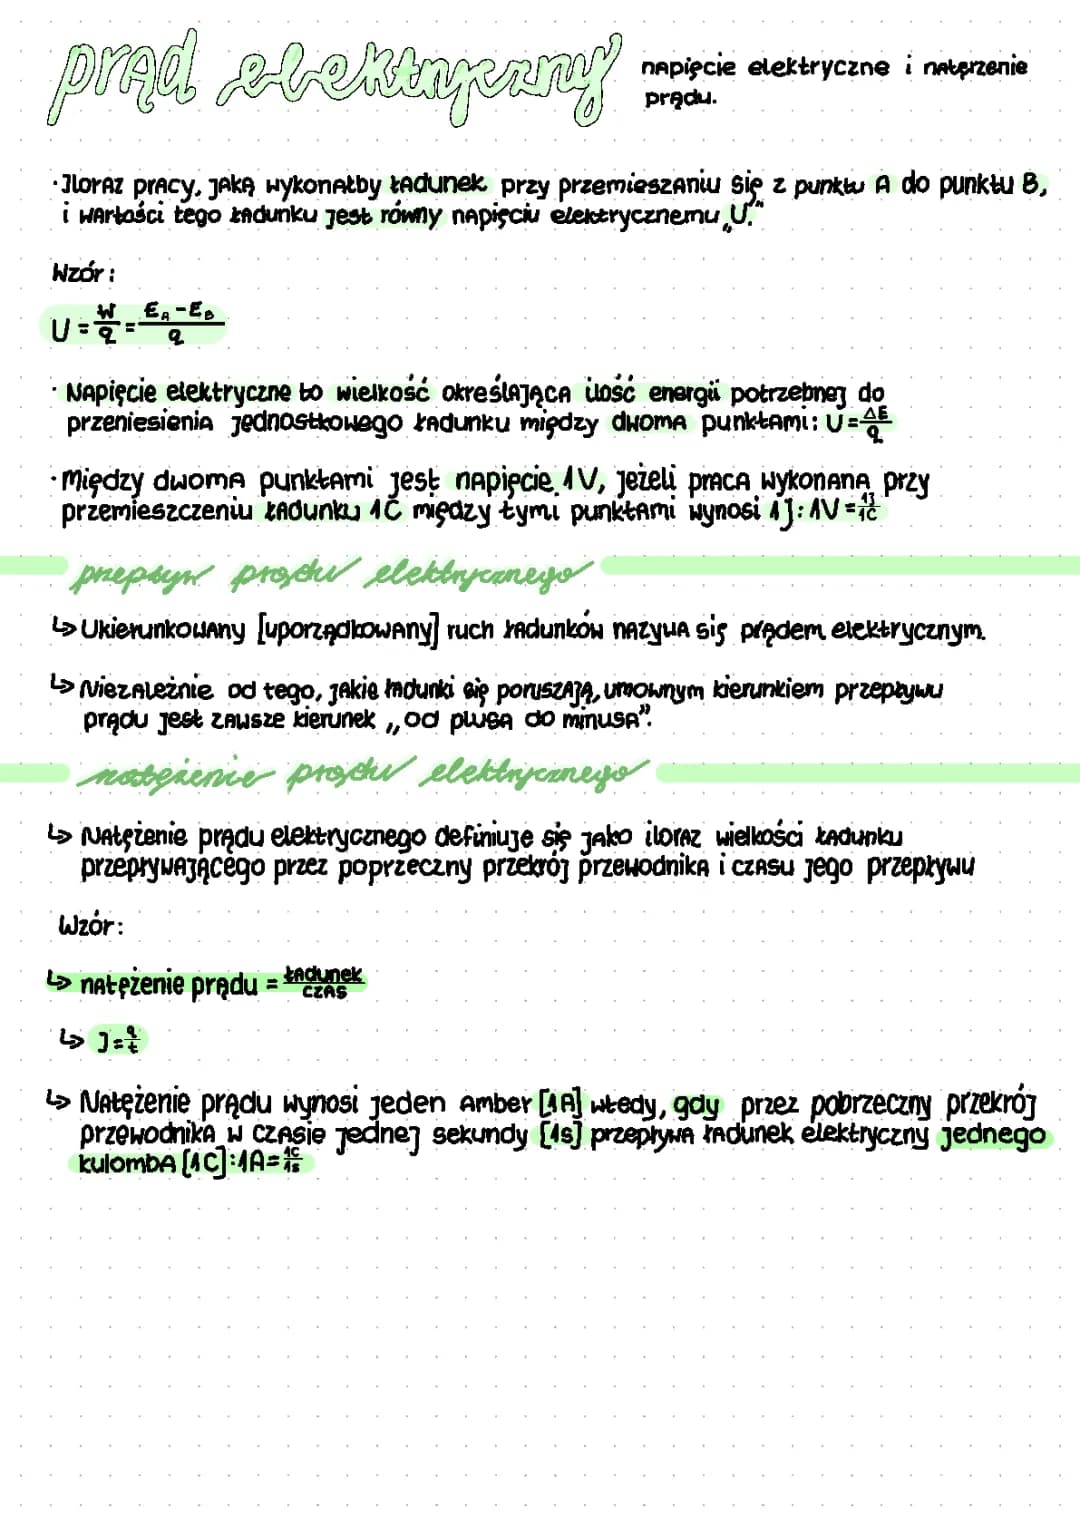 prąd elektryczny
napięcie elektryczne i natęrzenie
prądu.
· Iloraz pracy, jaką wykonałby ładunek przy przemieszaniu się z punktu A do punktu B,
i wartości tego ładunku jest równy napięciu elektrycznemu „U."
Wzór:
U = W/q = E_A - E_B/q
· Napięcie elektryczne to wielkość określająca ilość energii potrzebnej do
przeniesienia jednostkowego ładunku między dwoma punktami: U = ΔE/q
· Między dwoma punktami jest napięcie 1V, jeżeli praca wykonana przy
przemieszczeniu ładunku 1C między tymi punktami wynosi 1J: 1V = 1J/1C
przepływ prądu elektrycznego
↳ Ukierunkowany [uporządkowany] ruch ładunków nazywa się prądem elektrycznym.
↳ Niezależnie od tego, jakie ładunki się poruszają, umownym kierunkiem przepływu
prądu jest zawsze kierunek „od plusa do minusa".
natężenie prądu elektrycznego
↳ Natężenie prądu elektrycznego definiuje się jako iloraz wielkości ładunku
przepływającego przez poprzeczny przekrój przewodnika i czasu jego przepływu
Wzór:
↳ natężenie prądu = ładunek/czas
↳ I = q/t
↳ Natężenie prądu wynosi jeden Amber [1A] wtedy, gdy przez pobrzeczny przekrój
przewodnika w czasie jednej sekundy [1s] przepływa ładunek elektryczny jednego
kulomba [1C]: 1A = 1C/1s